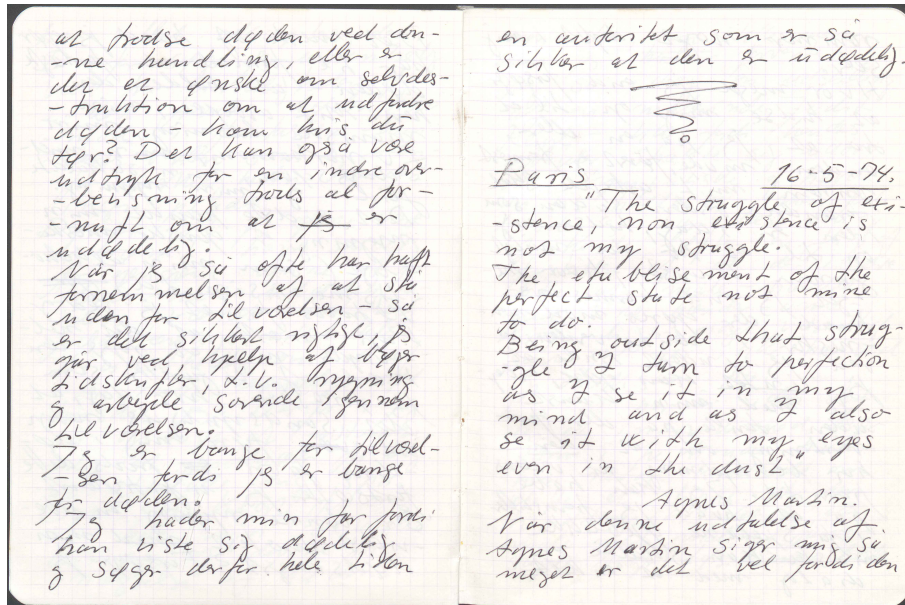 at trodse døden ved den-
-ne handling, eller er
det et ønske om selvdes-
-truktion om at udfordre
døden - kom hvis du
tør? Det kan også være
udtryk for en indre over-
-bevisning trods al for-
-nuft om at jeg er
udødelig.
Når jeg så ofte har haft
fornemmelsen af at stå
uden for tilværelsen - så
er det sikkert rigtigt, jeg
går ved hjælp af bøger
tidskrifter, t.v. rygning
og arbejde sovende gennem
tilværelsen.
Jeg er bange for tilværel-
-sen fordi jeg er bange
for døden.
Jeg hader min far fordi
han viste sig dødelig
og søger derfor hele tiden
en autoritet som er så
sikker at den er udødelig.
Paris 16-5-74.
"The struggle of exi-
-stence, non existence is
not my struggle.
The etablisement of the
perfect state not mine
to do.
Being outside that strug-
-gle I turn to perfection
as I se it in my
mind and as I also
se it with my eyes
even in the dust"
Agnes Martin.
Når denne udtalelse af
Agnes Martin siger mig så
meget er det vel fordi den